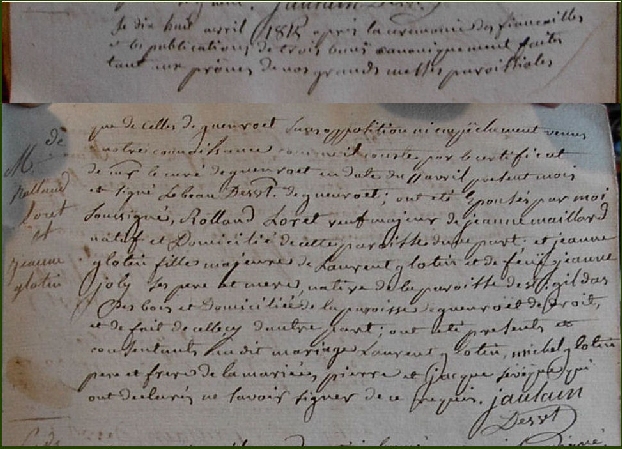 jaulain Desst
Le dix huit avril 1815 après la ceremonie des fiancailles
et les publications de trois bans canoniquement faites
tant aux prônes de nos grandes messes paroissiales
que de celles de guenroet sans opposition ni empêchement venus
a notre connaissance comme il conste par le certificat
de mr le curé de guenroet en date du avril present mois
et signé Lebeau Desst. de guenroet; ont été Epousés par moi
soussigné, Rolland Loret veuf majeur de jeanne maillard
natif et Domicilié de cette paroisse d'une part: et jeanne
glotin fille majeure de Laurent glotin et de feue jeanne
joly ses pere et mere, native de la paroisse de st gildas
Des bois et domiciliée de la paroisse de guenroët de Droit,
et de fait de celle cy d'autre part; ont été presents et
consentants audit mariage Laurent glotin, michel glotin
pere et frere de la mariée, pierre et Jacque qui
ont déclarés ne savoir signer de ce requis. jaulain
Desst
M. de
Rolland
Loret
et
jeanne
glotin